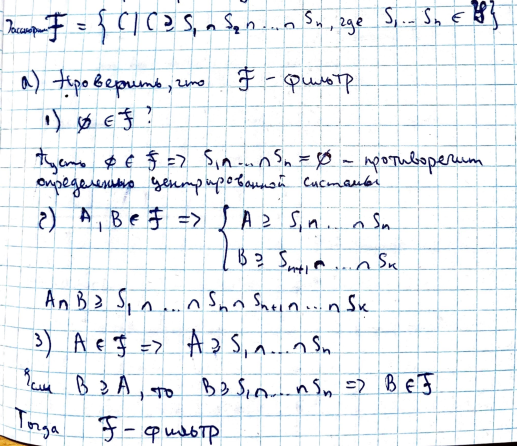 Рассмотрим F = { C | C ⊇ S₁ ∩ S₂ ∩ ... ∩ Sₙ, где S₁ ... Sₙ ∈ }
а) Проверить, что F - фильтр
1) ∅ ∈ F ?
Пусть ∅ ∈ F => S₁ ∩ ... ∩ Sₙ = ∅ - противоречит
определению центрированной системы
2) A, B ∈ F => { A ⊇ S₁ ∩ ... ∩ Sₙ
B ⊇ Sₙ₊₁ ∩ ... ∩ Sₖ
A ∩ B ⊇ S₁ ∩ ... ∩ Sₙ ∩ Sₙ₊₁ ∩ ... ∩ Sₖ
3) A ∈ F => A ⊇ S₁ ∩ ... ∩ Sₙ
Если B ⊇ A, то B ⊇ S₁ ∩ ... ∩ Sₙ => B ∈ F
Тогда F - фильтр